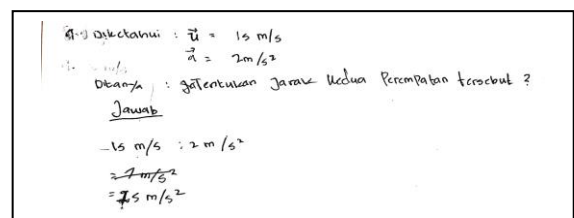 Diketahui : u = 15 m/s
a = 2m/s²
Ditanya : Tentukan Jarak kedua Perempatan tersebut ?
Jawab
15 m/s : 2 m/s²
= 7 m/s²
= 7,5 m/s²